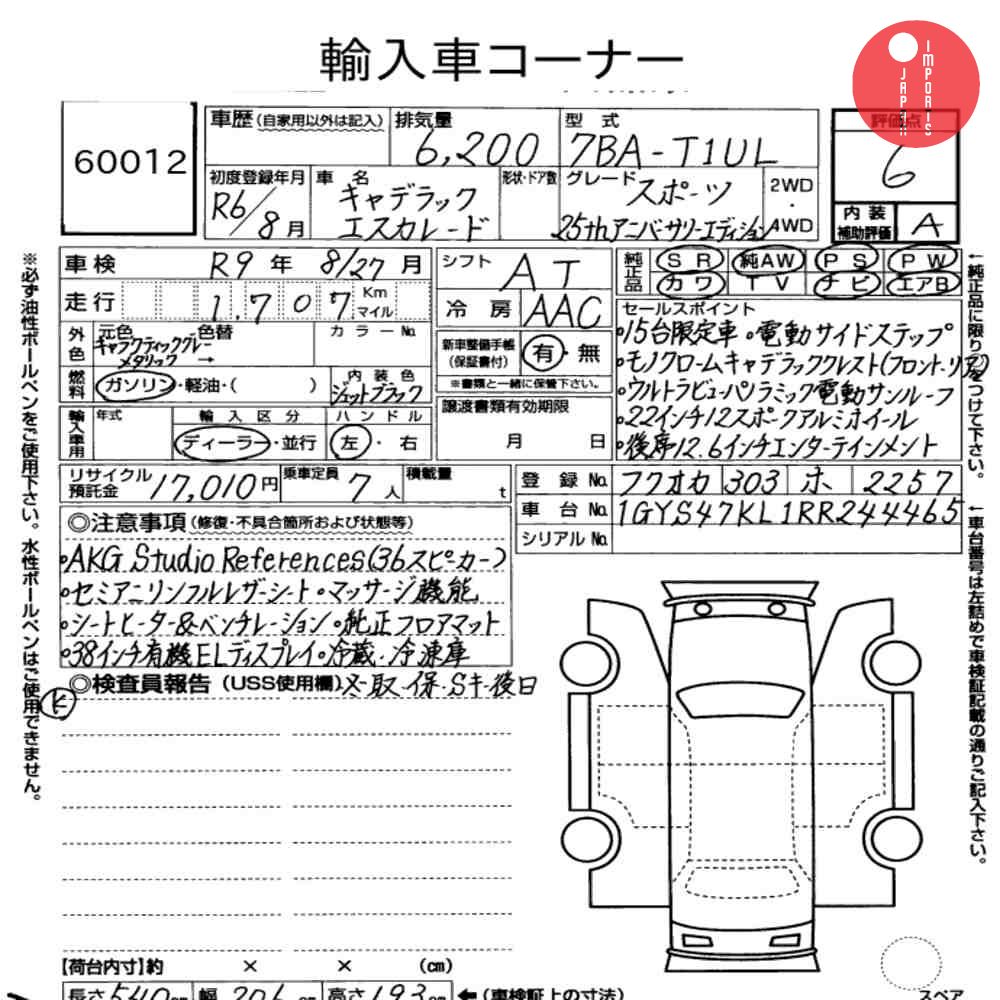 輸入車コーナー
JAPAN IMPORTS
60012
車歴 (自家用以外は記入)
排気量 6,200
型式 7BA-T1UL
評価点 6
初度登録年月 R6/8月
車名 キャデラック エスカレード
形状・ドア数
グレード スポーツ 25thアニバーサリーエディション
2WD・4WD
内装補助評価 A
車検 R9年 8/27月
走行 1,707 Km マイル
シフト AT
冷房 AAC
純正品 SR 純AW PS PW
カワ TV ナビ エアB
外色 元色 色替 カラーNo.
ギャラクティックグレーメタリック →
燃料 ガソリン・軽油・( )
内装色 ジェットブラック
新車整備手帳(保証書付) 有・無
※書類と一緒に保管下さい。
セールスポイント
•15台限定車 •電動サイドステップ
•モノクロームキャデラッククレスト(フロント・リア)
•ウルトラビューパノラミック電動サンルーフ
•22インチ12スポークアルミホイール
•後席12.6インチエンターテインメント
輸入車用 年式 輸入区分 ハンドル
ディーラー・並行 左・右
譲渡書類有効期限
月 日
リサイクル預託金 17,010円
乗車定員 7人
積載量 t
登録No. フクオカ 303 ホ 2257
車台No. 1GYS47KL1RR244465
シリアルNo.
◎注意事項 (修復・不具合箇所および状態等)
•AKG Studio References(36スピーカー)
•セミアニリンフルレザーシート•マッサージ機能
•シートヒーター&ベンチレーション•純正フロアマット
•38インチ有機ELディスプレイ•冷蔵・冷凍庫
◎検査員報告 (USS使用欄) 取・保・Sキー後日
※必ず油性ボールペンをご使用下さい。水性ボールペンはご使用できません。
←純正品に限り○をつけて下さい。
←車台番号は左詰めで車検証記載の通りご記入下さい。
【荷台内寸】約 × × (cm)
長さ540cm 幅206cm 高さ193cm ←(車検証上の寸法)
スペア